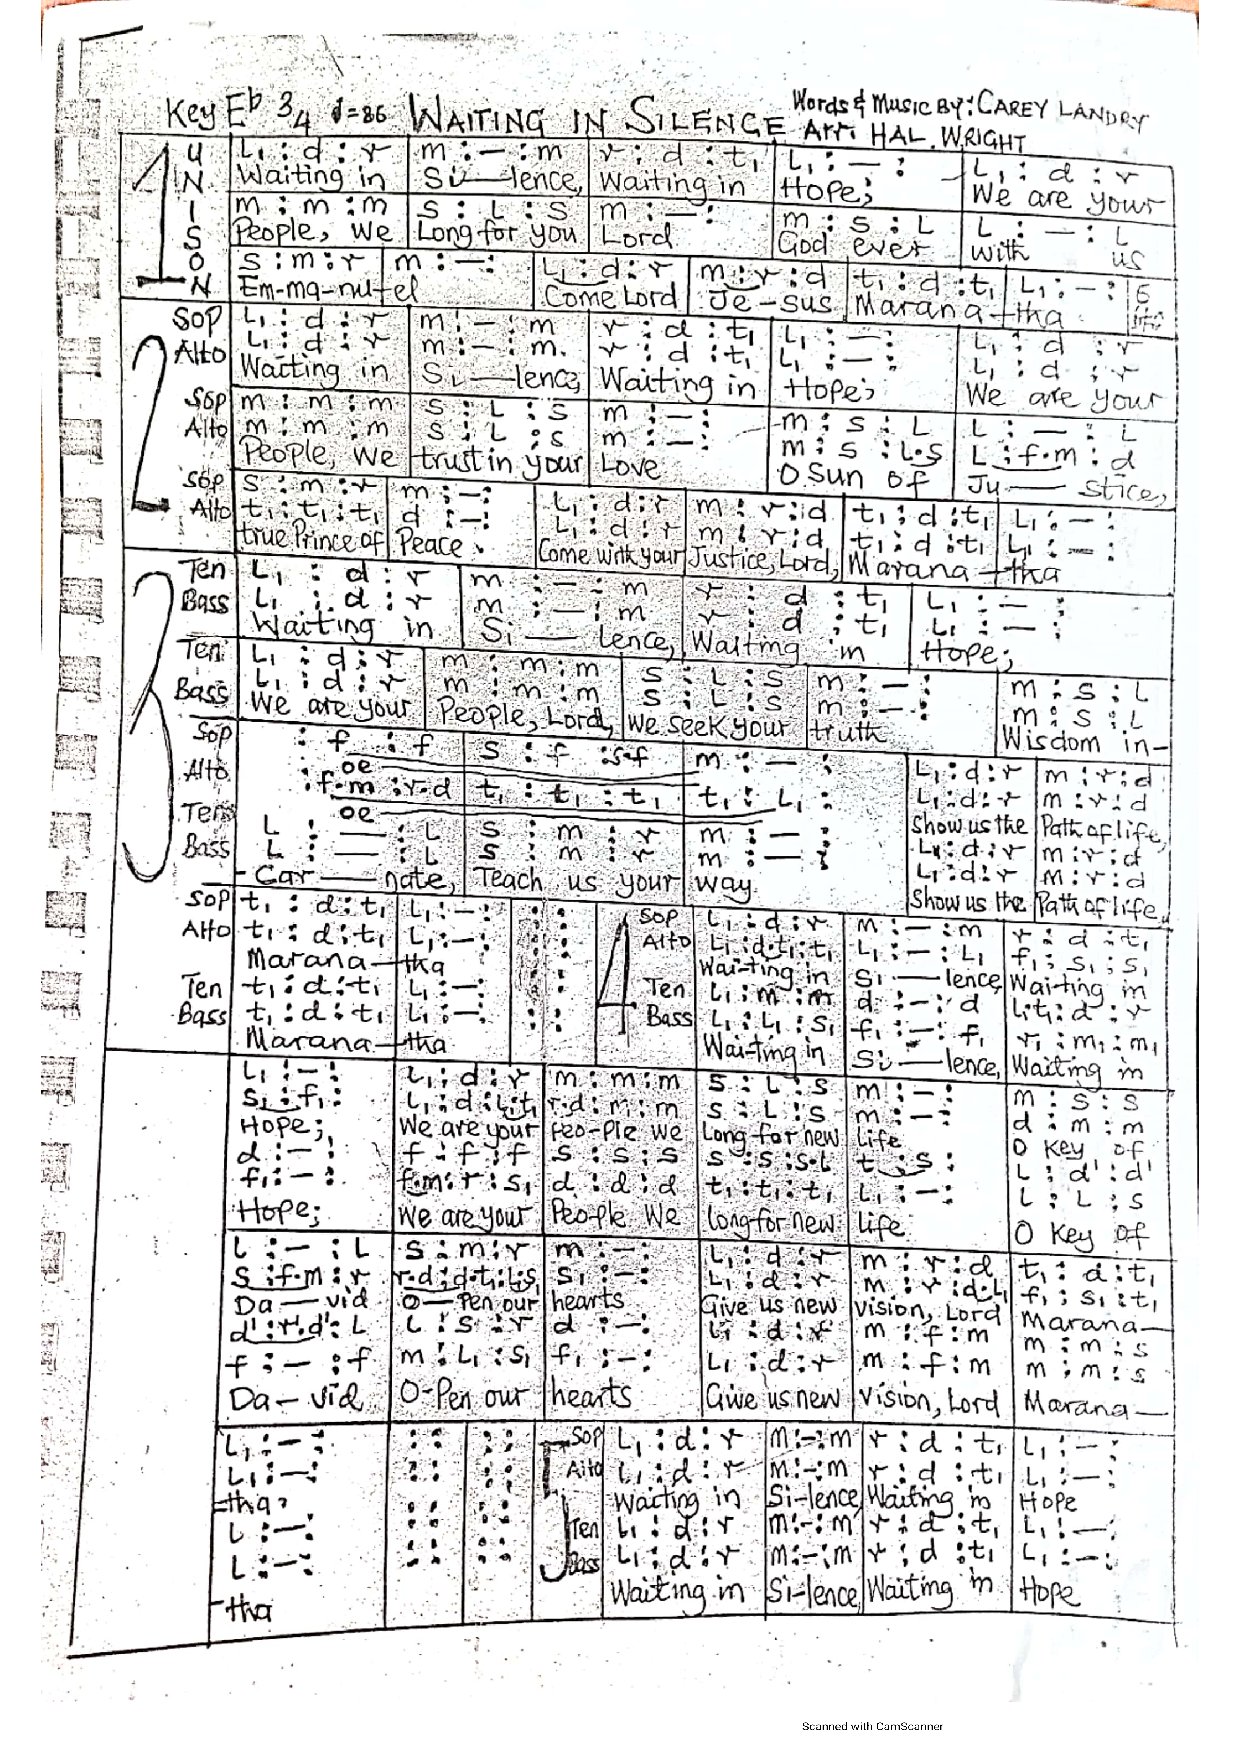 Key Eb 3/4 d=86 WAITING IN SILENCE Words & Music BY: CAREY LANDRY
Arr: HAL. WRIGHT
1 UNISON
L₁ : d : r | m : — : m | r : d : t₁ | L₁ : — : | L₁ : d : r
Waiting in Si—lence, Waiting in Hope; We are your
m : m : m | s : L : s | m : — : | m : s : L | L : — : L
People, we Long for you Lord God ever with us
s : m : r | m : — : | L₁ : d : r | m : r : d | t₁ : d : t₁ | L₁ : — :
Em-ma-nu-el Come Lord Je-sus Marana-tha
2
Sop L₁ : d : r | m : — : m | r : d : t₁ | L₁ : — : | L₁ : d : r
Alto L₁ : d : r | m : — : m | r : d : t₁ | L₁ : — : | L₁ : d : r
Waiting in Si—lence, Waiting in Hope; We are your
Sop m : m : m | s : L : s | m : — : | m : s : L | L : — : L
Alto m : m : m | s : L : s | m : — : | m : s : L.s | L : f.m : d
People, We trust in your Love O Sun of Ju—stice,
Sop s : m : r | m : — : | L₁ : d : r | m : r : d | t₁ : d : t₁ | L₁ : — :
Alto t₁ : t₁ : t₁ | d : — : | L₁ : d : r | m : r : d | t₁ : d : t₁ | L₁ : — :
true Prince of Peace. Come with your Justice, Lord, Marana-tha
3
Ten L₁ : d : r | m : — : m | r : d : t₁ | L₁ : — :
Bass L₁ : d : r | m : — : m | r : d : t₁ | L₁ : — :
Waiting in Si—lence, Waiting in Hope;
Ten L₁ : d : r | m : m : m | s : L : s | m : — : | m : s : L
Bass L₁ : d : r | m : m : m | s : L : s | m : — : | m : s : L
We are your People, Lord, we seek your truth Wisdom in-
Sop : f : f | s : f : s.f | m : — : | L₁ : d : r | m : r : d
oe
Alto : f.m : r.d | t₁ : t₁ : t₁ | t₁ : L₁ : | L₁ : d : r | m : r : d
oe Show us the Path of life,
Ten L : — : L | s : m : r | m : — : | L₁ : d : r | m : r : d
Bass L : — : L | s : m : r | m : — : | L₁ : d : r | m : r : d
-Car—nate, Teach us your way. Show us the Path of life,
Sop t₁ : d : t₁ | L₁ : — :
Alto t₁ : d : t₁ | L₁ : — :
Marana-tha
Ten t₁ : d : t₁ | L₁ : — :
Bass t₁ : d : t₁ | L₁ : — :
Marana-tha
4
Sop L₁ : d : r | m : — : m | r : d : t₁
Alto L₁ : d.t₁ : t₁ | L₁ : — : L₁ | f₁ : s₁ : s₁
Wai-ting in Si—lence, Waiting in
Ten L₁ : m : m | d : — : d | L₁.t₁ : d : r
Bass L₁ : L₁ : s₁ | f₁ : — : f₁ | r₁ : m₁ : m₁
Wai-ting in Si—lence, Waiting in
L₁ : — : | L₁ : d : r | m : m : m | s : L : s | m : — : | m : s : s
s₁ : f₁ : | L₁ : d : L₁.t₁ | r.d : m : m | s : L : s | m : — : | d : m : m
Hope; We are your Peo-ple we Long for new life O Key of
d : — : | f : f : f | s : s : s | s : s : s.L | t : s : | L : d' : d'
f₁ : — : | f.m : r : s₁ | d : d : d | t₁ : t₁ : t₁ | L₁ : — : | L : L : s
Hope; We are your People We long for new life O Key of
L : — : L | s : m : r | m : — : | L₁ : d : r | m : r : d | t₁ : d : t₁
s : f.m : r | r.d : d.t₁ : L₁.s₁ | s₁ : — : | L₁ : d : r | m : r : d.L₁ | f₁ : s₁ : t₁
Da—vid O—Pen our hearts Give us new vision, Lord Marana—
d' : r'.d' : L | L : s : r | d : — : | L₁ : d : r | m : f : m | m : m : s
f : — : f | m : L₁ : s₁ | f₁ : — : | L₁ : d : r | m : f : m | m : m : s
Da—vid O-Pen our hearts Give us new Vision, Lord Marana—
L₁ : — :
L₁ : — :
-tha,
L : — :
L : — :
-tha
5
Sop L₁ : d : r | m : — : m | r : d : t₁ | L₁ : — :
Alto L₁ : d : r | m : — : m | r : d : t₁ | L₁ : — :
Waiting in Si-lence Waiting in Hope
Ten L₁ : d : r | m : — : m | r : d : t₁ | L₁ : — :
Bass L₁ : d : r | m : — : m | r : d : t₁ | L₁ : — :
Waiting in Si-lence, Waiting in Hope
Scanned with CamScanner